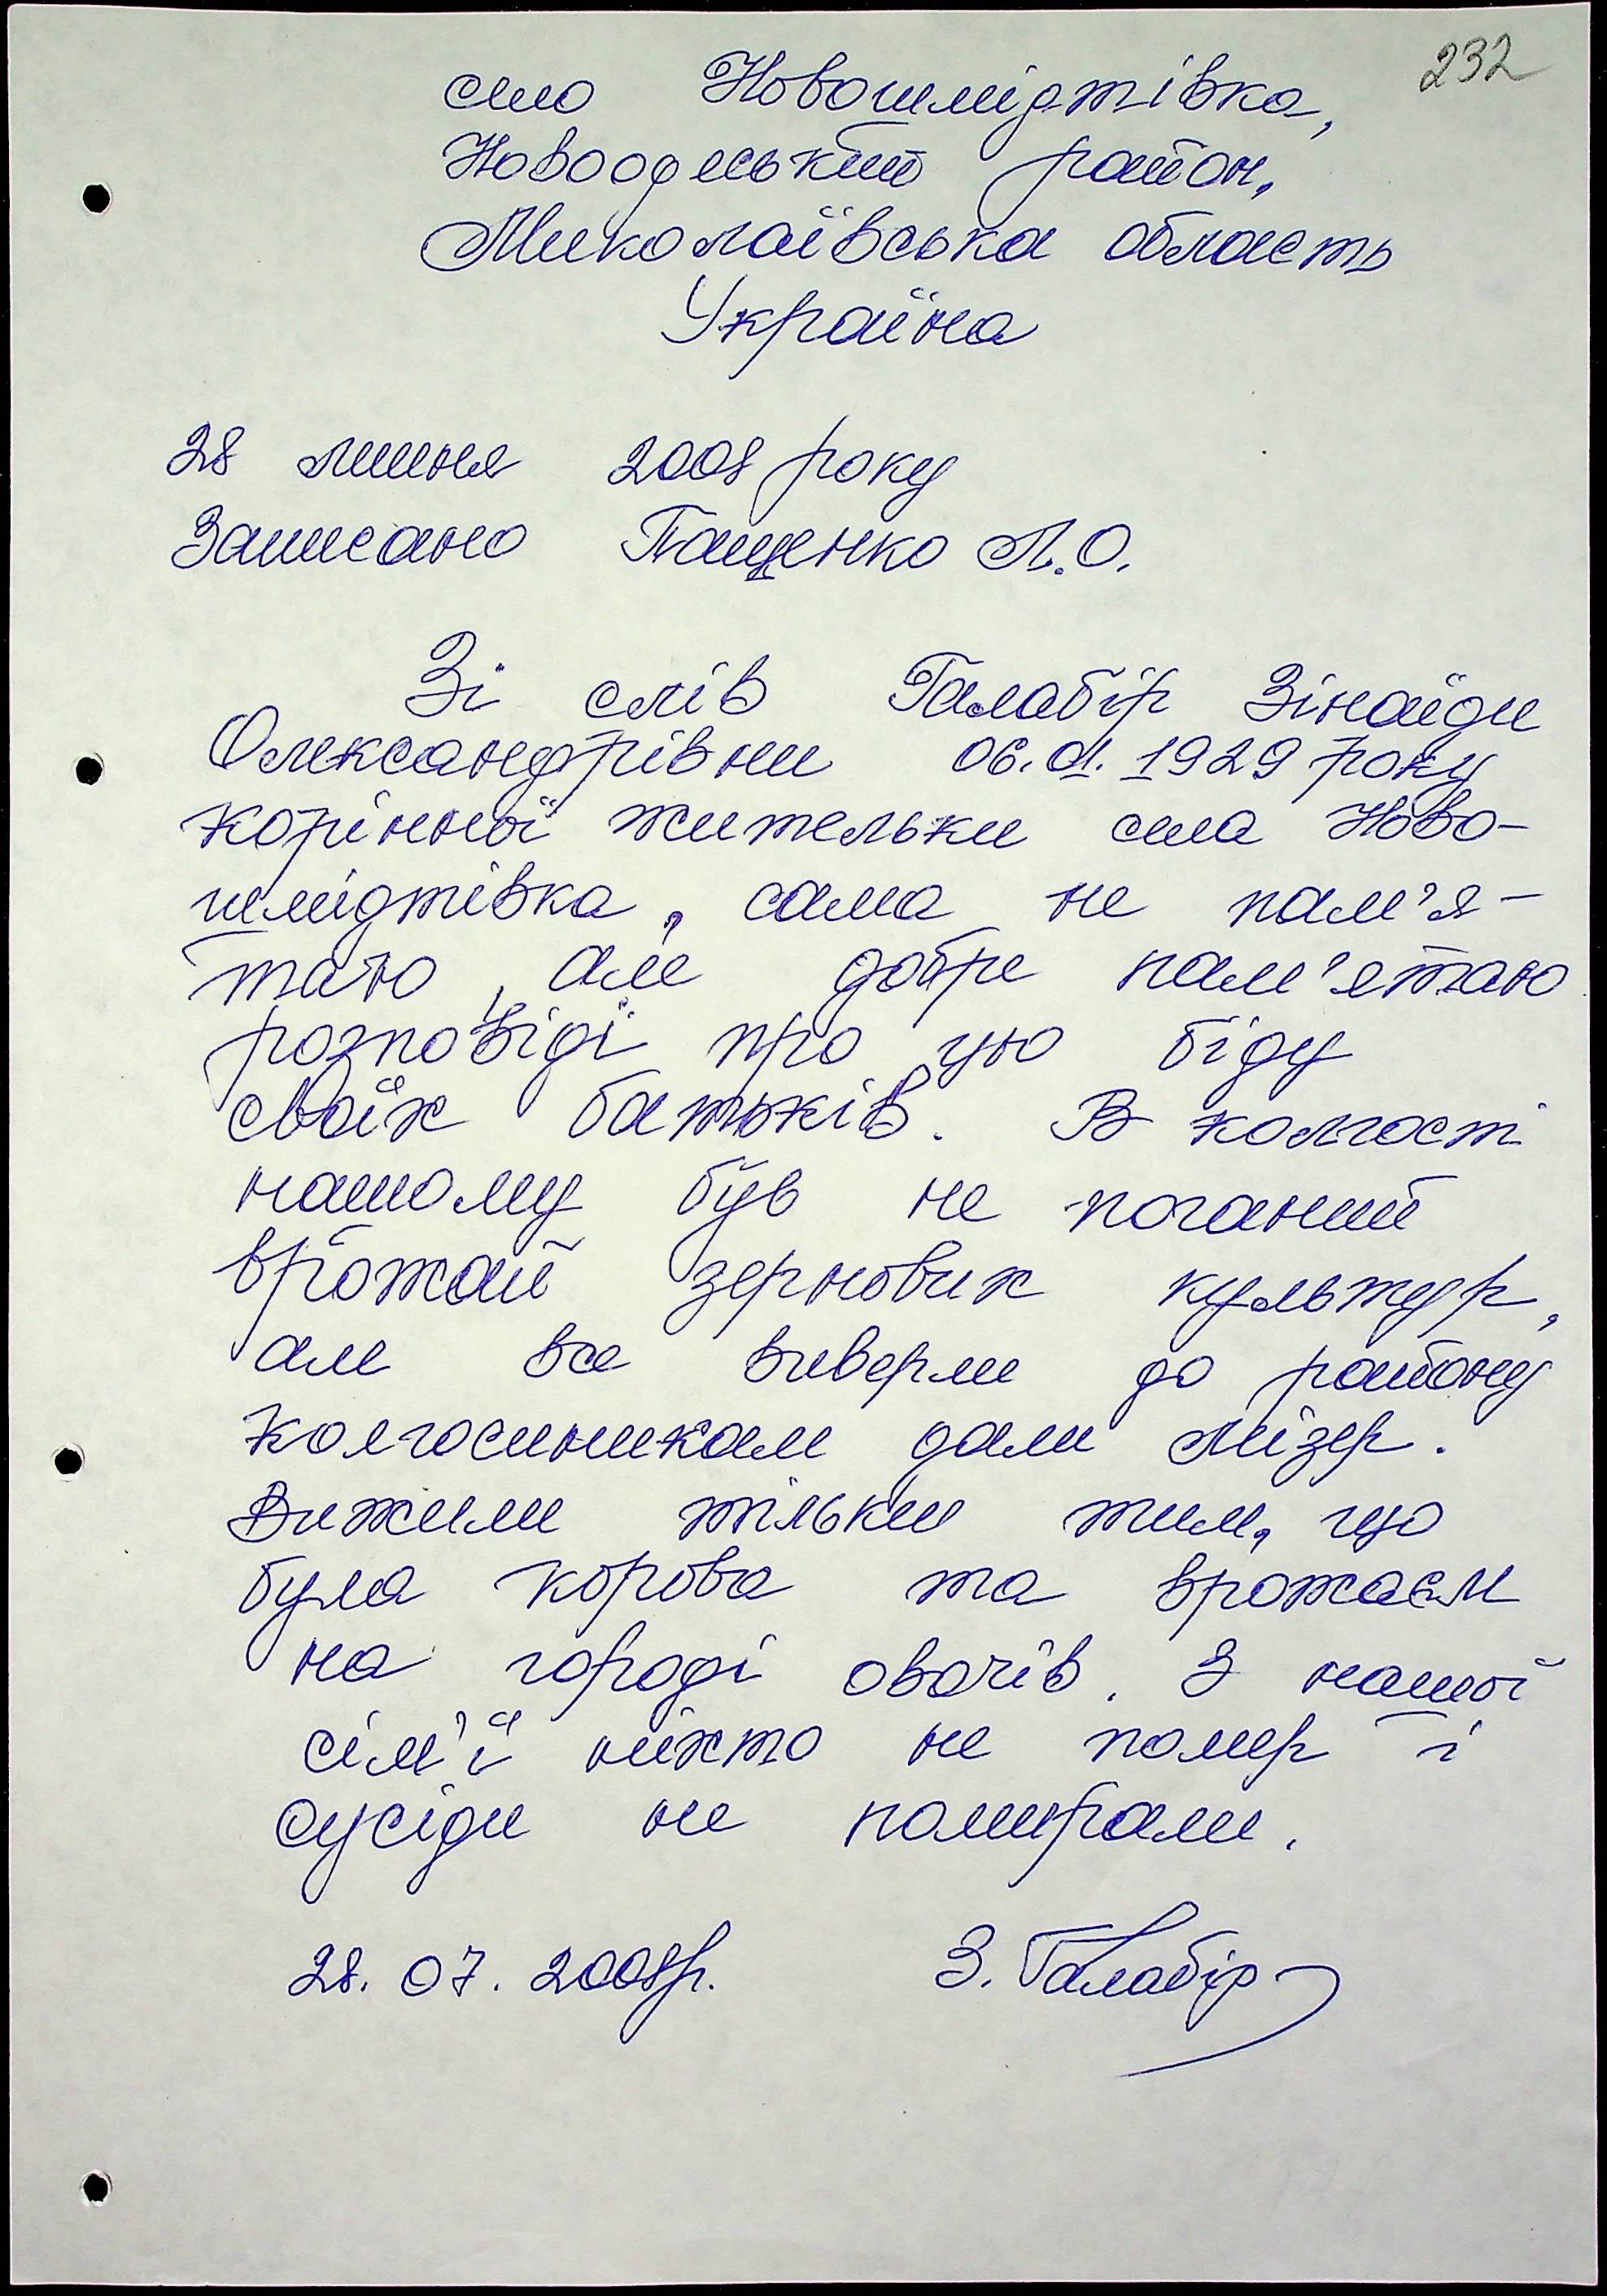 232
село Новошмідтівка,
Новоодеський район,
Миколаївська область
Україна
28 липня 2008 року
Записано Пащенко Л.О.
Зі слів Галабір Зінаїди
Олександрівни 06.01.1929 року
корінної жительки села Ново-
шмідтівка, сама не пам'я-
таю, але добре пам'ятаю
розповіді про цю біду
своїх батьків. В колгості
нашому був не поганий
врожай зернових культур,
але все виверли до району
колгоспникам дали мізер.
Вижили тільки тим, що
була корова та врожаєм
на городі овочів. З нашої
сім'ї ніхто не помер і
сусіди не помирали.
28.07.2008р. З. Галабір